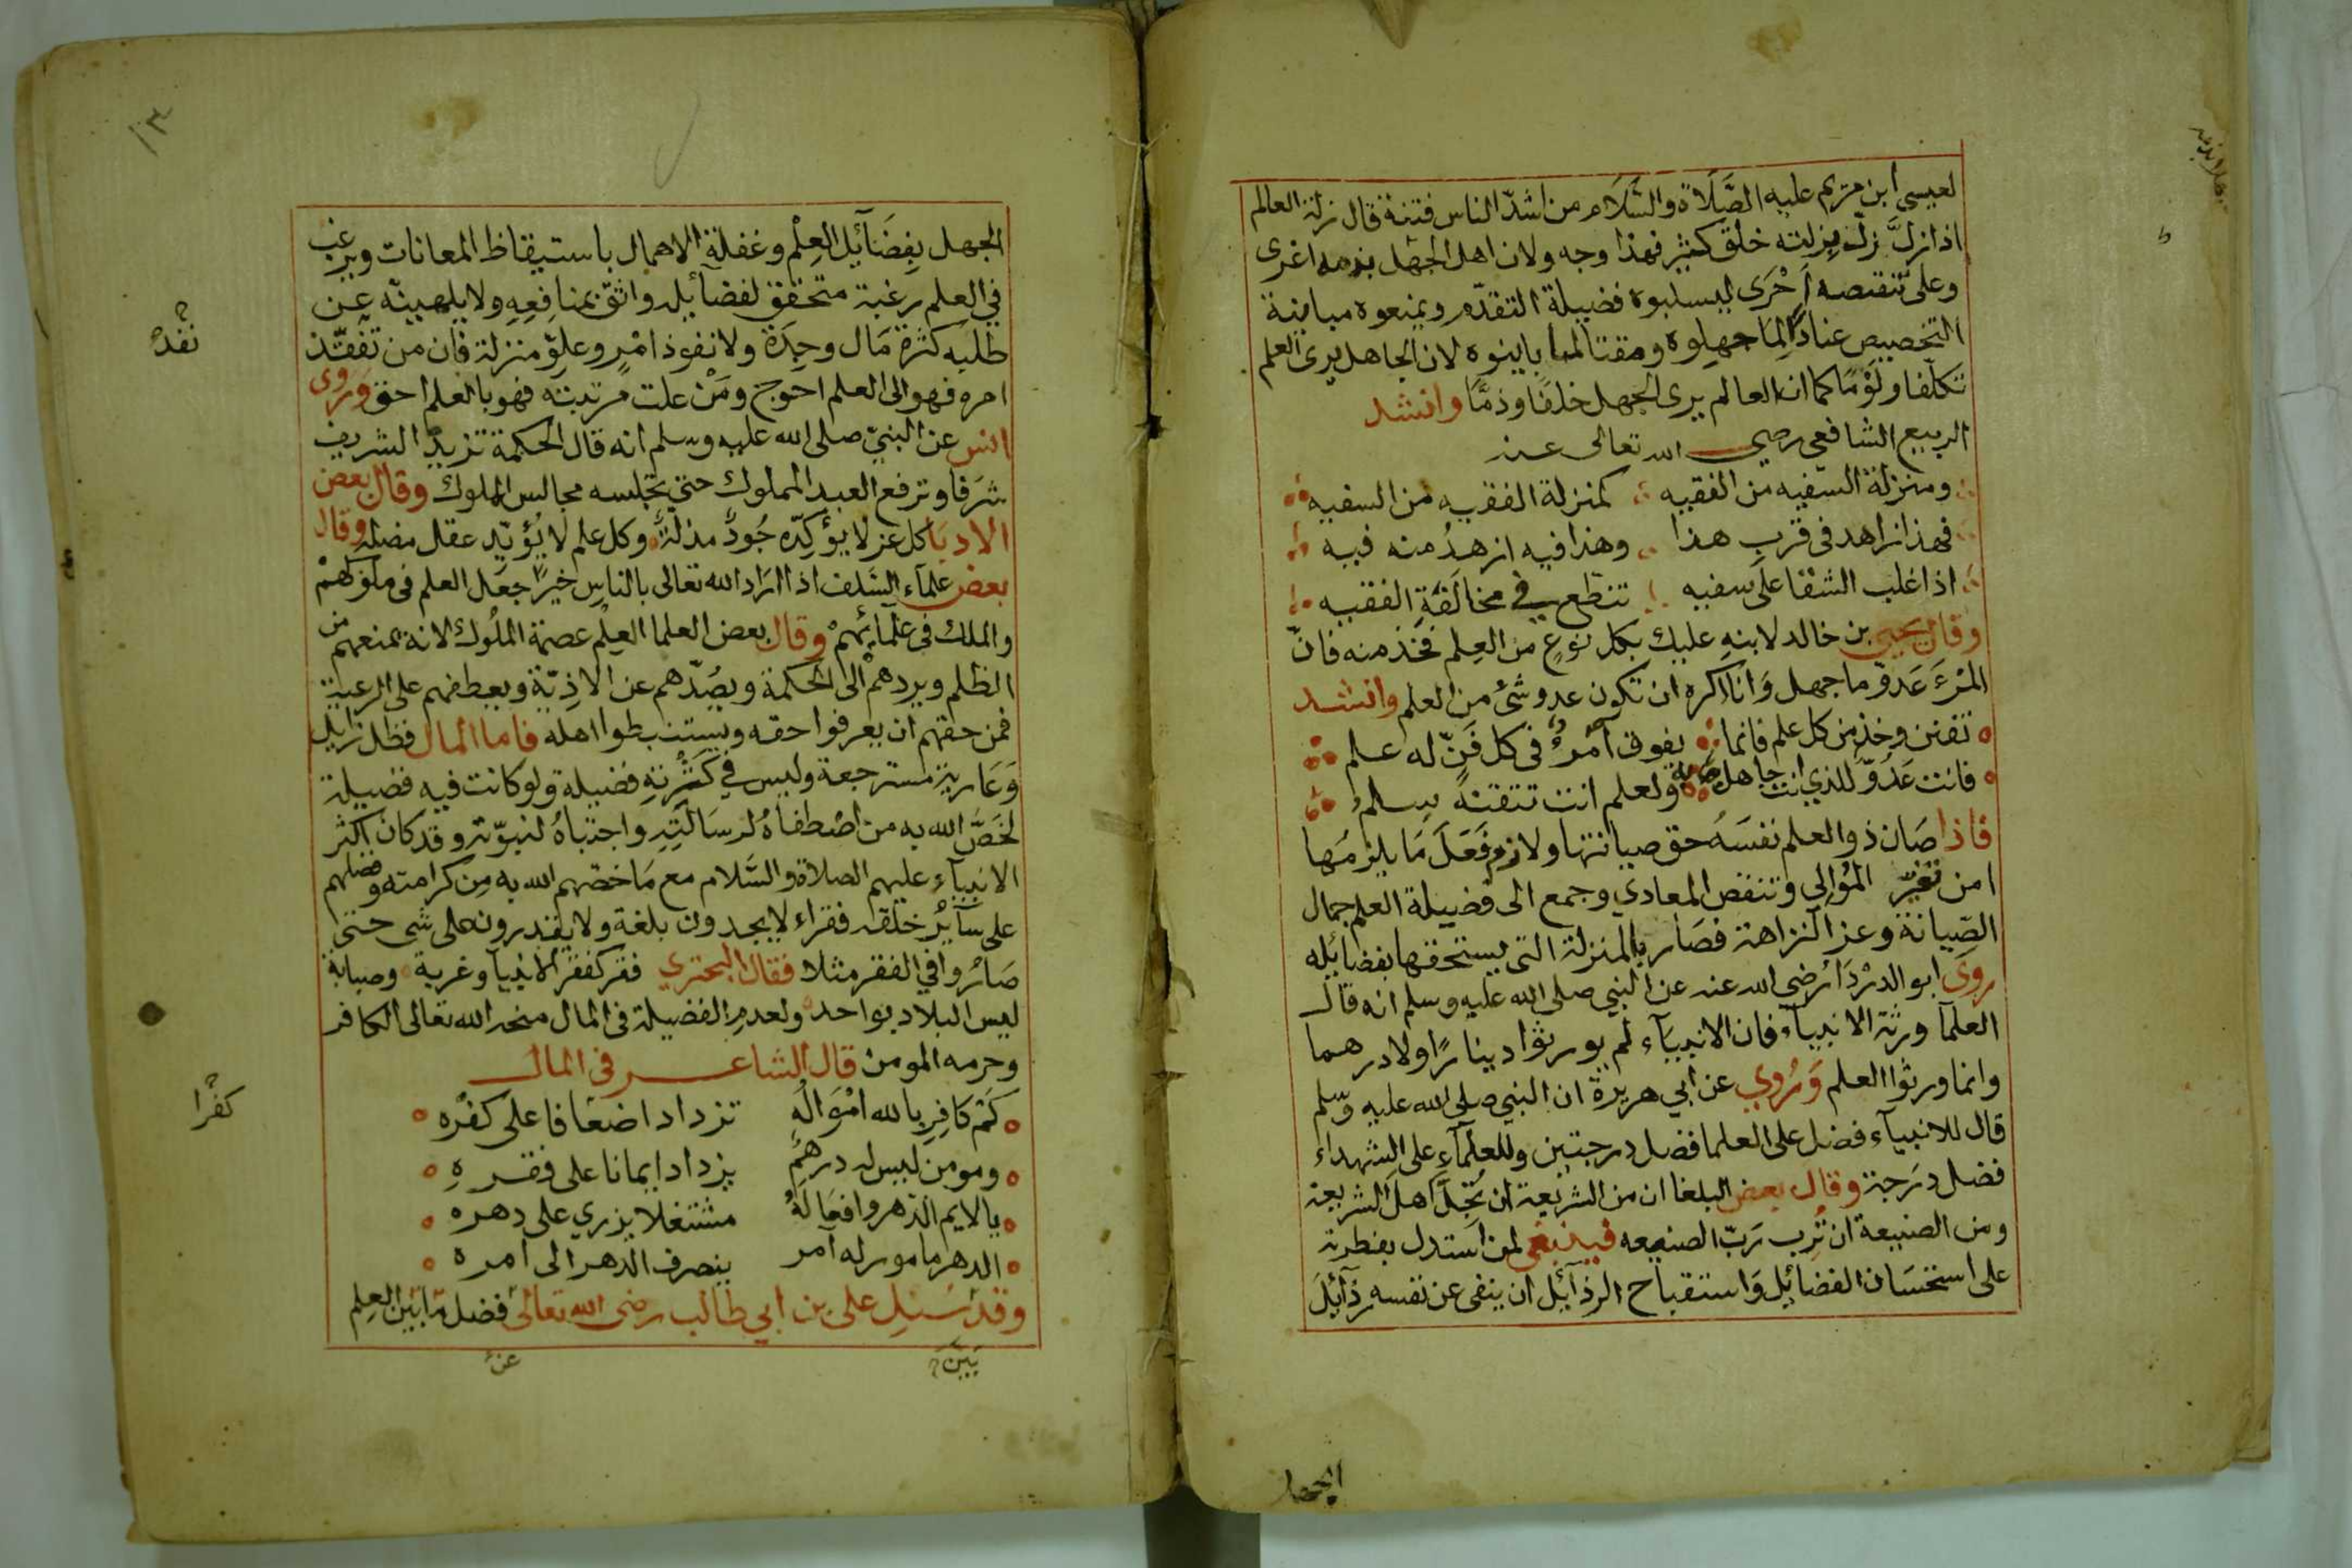 لعيسى ابن مريم عليه الصَّلَاة والسَّلَام من اشدّ الناس فتنة قال زلة العالم
اذا زلَّ زلّ بزلته خلق كثير فهذا وجه ولان اهل الجهل بذمه اغرى
وعلى تنقصه أَحْرَى ليسلبوه فضيلة التقدّم ويمنعوه مباينة
التخصيص عنادًا لِمَا جهلوه ومقتا لما باينوه لان الجاهل يرى العلم
تكلّفا ولَوْمًا كما ان العالم يرى الجهل خلفًا وذمًّا وانشد
الربيع الشافعي رضى الله تعالى عنه
ومنزلة السفيه من الفقيه كمنزلة الفقيه من السفيه
فهذا زاهد فى قرب هذا وهذا فيه ازهدُ منه فيه
اذا غلب الشقا على سفيه تنطّع في مخالَفَةِ الفقيه
وقال يحيى بن خالد لابنهِ عليك بكل نوعٍ من العِلم فخذ منه فانّ
المْرءَ عَدوّ ما جهل وَانا اكره ان تكون عدو شئ من العلم وانشد
تفنن وخذ من كل علم فانما يفوق أمْرءٌ فى كل فَنّ له علم
فانت عَدُوّ للذي انت جاهل به ولعلم انت تتقنهُ سلمُ
فاذا صَان ذو العلم نفسَهُ حق صيانتها ولازم فَعَلَ مَا يلزمُها
امن تغيّر المُوالِي وتنقص المعادي وجمع الى فضيلة العلم جمال
الصّيانة وعز النزاهة فصَار بالمنزلة التى يستحقها بفضائله
روى ابو الدرْدَا رضى الله عنه عن النبي صلى الله عليه وسلم انه قال
العلمآ ورثة الانبيآء فان الانبيَآء لم يورثوا دينارًا ولا درهما
وانما ورثوا العلم وَرُوِي عن أبي هريرة ان النبي صلى الله عليه وسلم
قال للانبيآء فضل على العلما فضل درجتين وللعلمَآءِ على الشهداء
فضل درَجة وقال بعض البلغا ان من الشريعة ان تُجِلَّ اهل الشريعة
ومن الصنيعة ان تُرِب رَبّ الصنيعه فينبغى لمن استدل بفطرته
على استحسَان الفضائِل وَاستقباح الرذآئِل ان ينفى عن نفسه رذآئِلَ
الجهل
١٣
الجهل بِفضَآئِل العِلْم وغفلة الاهمال باستيقاظ المعانات ويرغب
في العلم رغبة متحقق لفضآئله واثق بمنافِعِهِ ولا يلهيه عن
طلبِه كثرة مَال وحِدَة ولا نفوذ امْر وعلوّ منزلة فان من تفقّذ
نفَذ
امره فهو الى العلم احوج ومَنْ علت مرتبته فهو بالعلم احق وَروى
انس عن النبيّ صلى الله عليه وسلم انه قال الحكمة تزيد الشريف
شرَفا وترفع العبد المملوك حتى تجلسه مجالس الملوك وقال بعض
الادبَا كل عز لا يؤكّده جُودٌ مذلة وكل علم لا يُؤيّده عقل مضلة وقال
بعض علمآء السّلف اذا ارَاد الله تعالى بالناس خيرًا جعَل العلم فى ملوكهمْ
والملك فى علمآئِهمْ وقال بعض العلما العِلم عصمة الملُوك لانه يمنعهم من
الظلم ويردهمْ الى الحكمة ويصُدّهم عن الاذِيّة ويعطفهم على الرعية
فمن حقهم ان يعرفوا حقه ويستنبطوا اهله فاما المال فظل زايل
وَعَارية مسترجعة وليس في كَثْرتِهِ فضيلة ولو كانت فيه فضيلة
لخَصَّ الله به من اصْطفاهُ لرسَالَتِهِ واجتباهُ لنبوّته وقد كان اكثر
الانبيآءِ عليهم الصلاة والسَّلام مع مَا خصّهم الله به مِن كرامته وفضلهم
على سآيرُ خلقه فقراء لا يجدون بلغة ولا يقدرون على شى حتى
صَارُوا في الفقر مثلا فقال البحتري فقر كفقر الانبيآ وغربة وصبابة
ليس البلاد بواحد ولعدمِ الفضيلة فى المال منحه الله تعالى الكافر
وحرمه المومن قال الشاعر فى المال
كَمْ كافِرٍ بالله امْوَالُه تزداد اضعَافا على كفره
كفرًا
ومومن ليس له درهمٌ يزداد ايمانا على فقره
يا لايم الدّهر وافعَالهُ مشتغلا يزري على دهره
الدهر مامور له آمر ينصرف الدهر الى امره
وقد سَئِل على بن ابي طالب رضى الله تعالى فضل مَا بَيْن العِلم
عنهُ
بَيْنَ